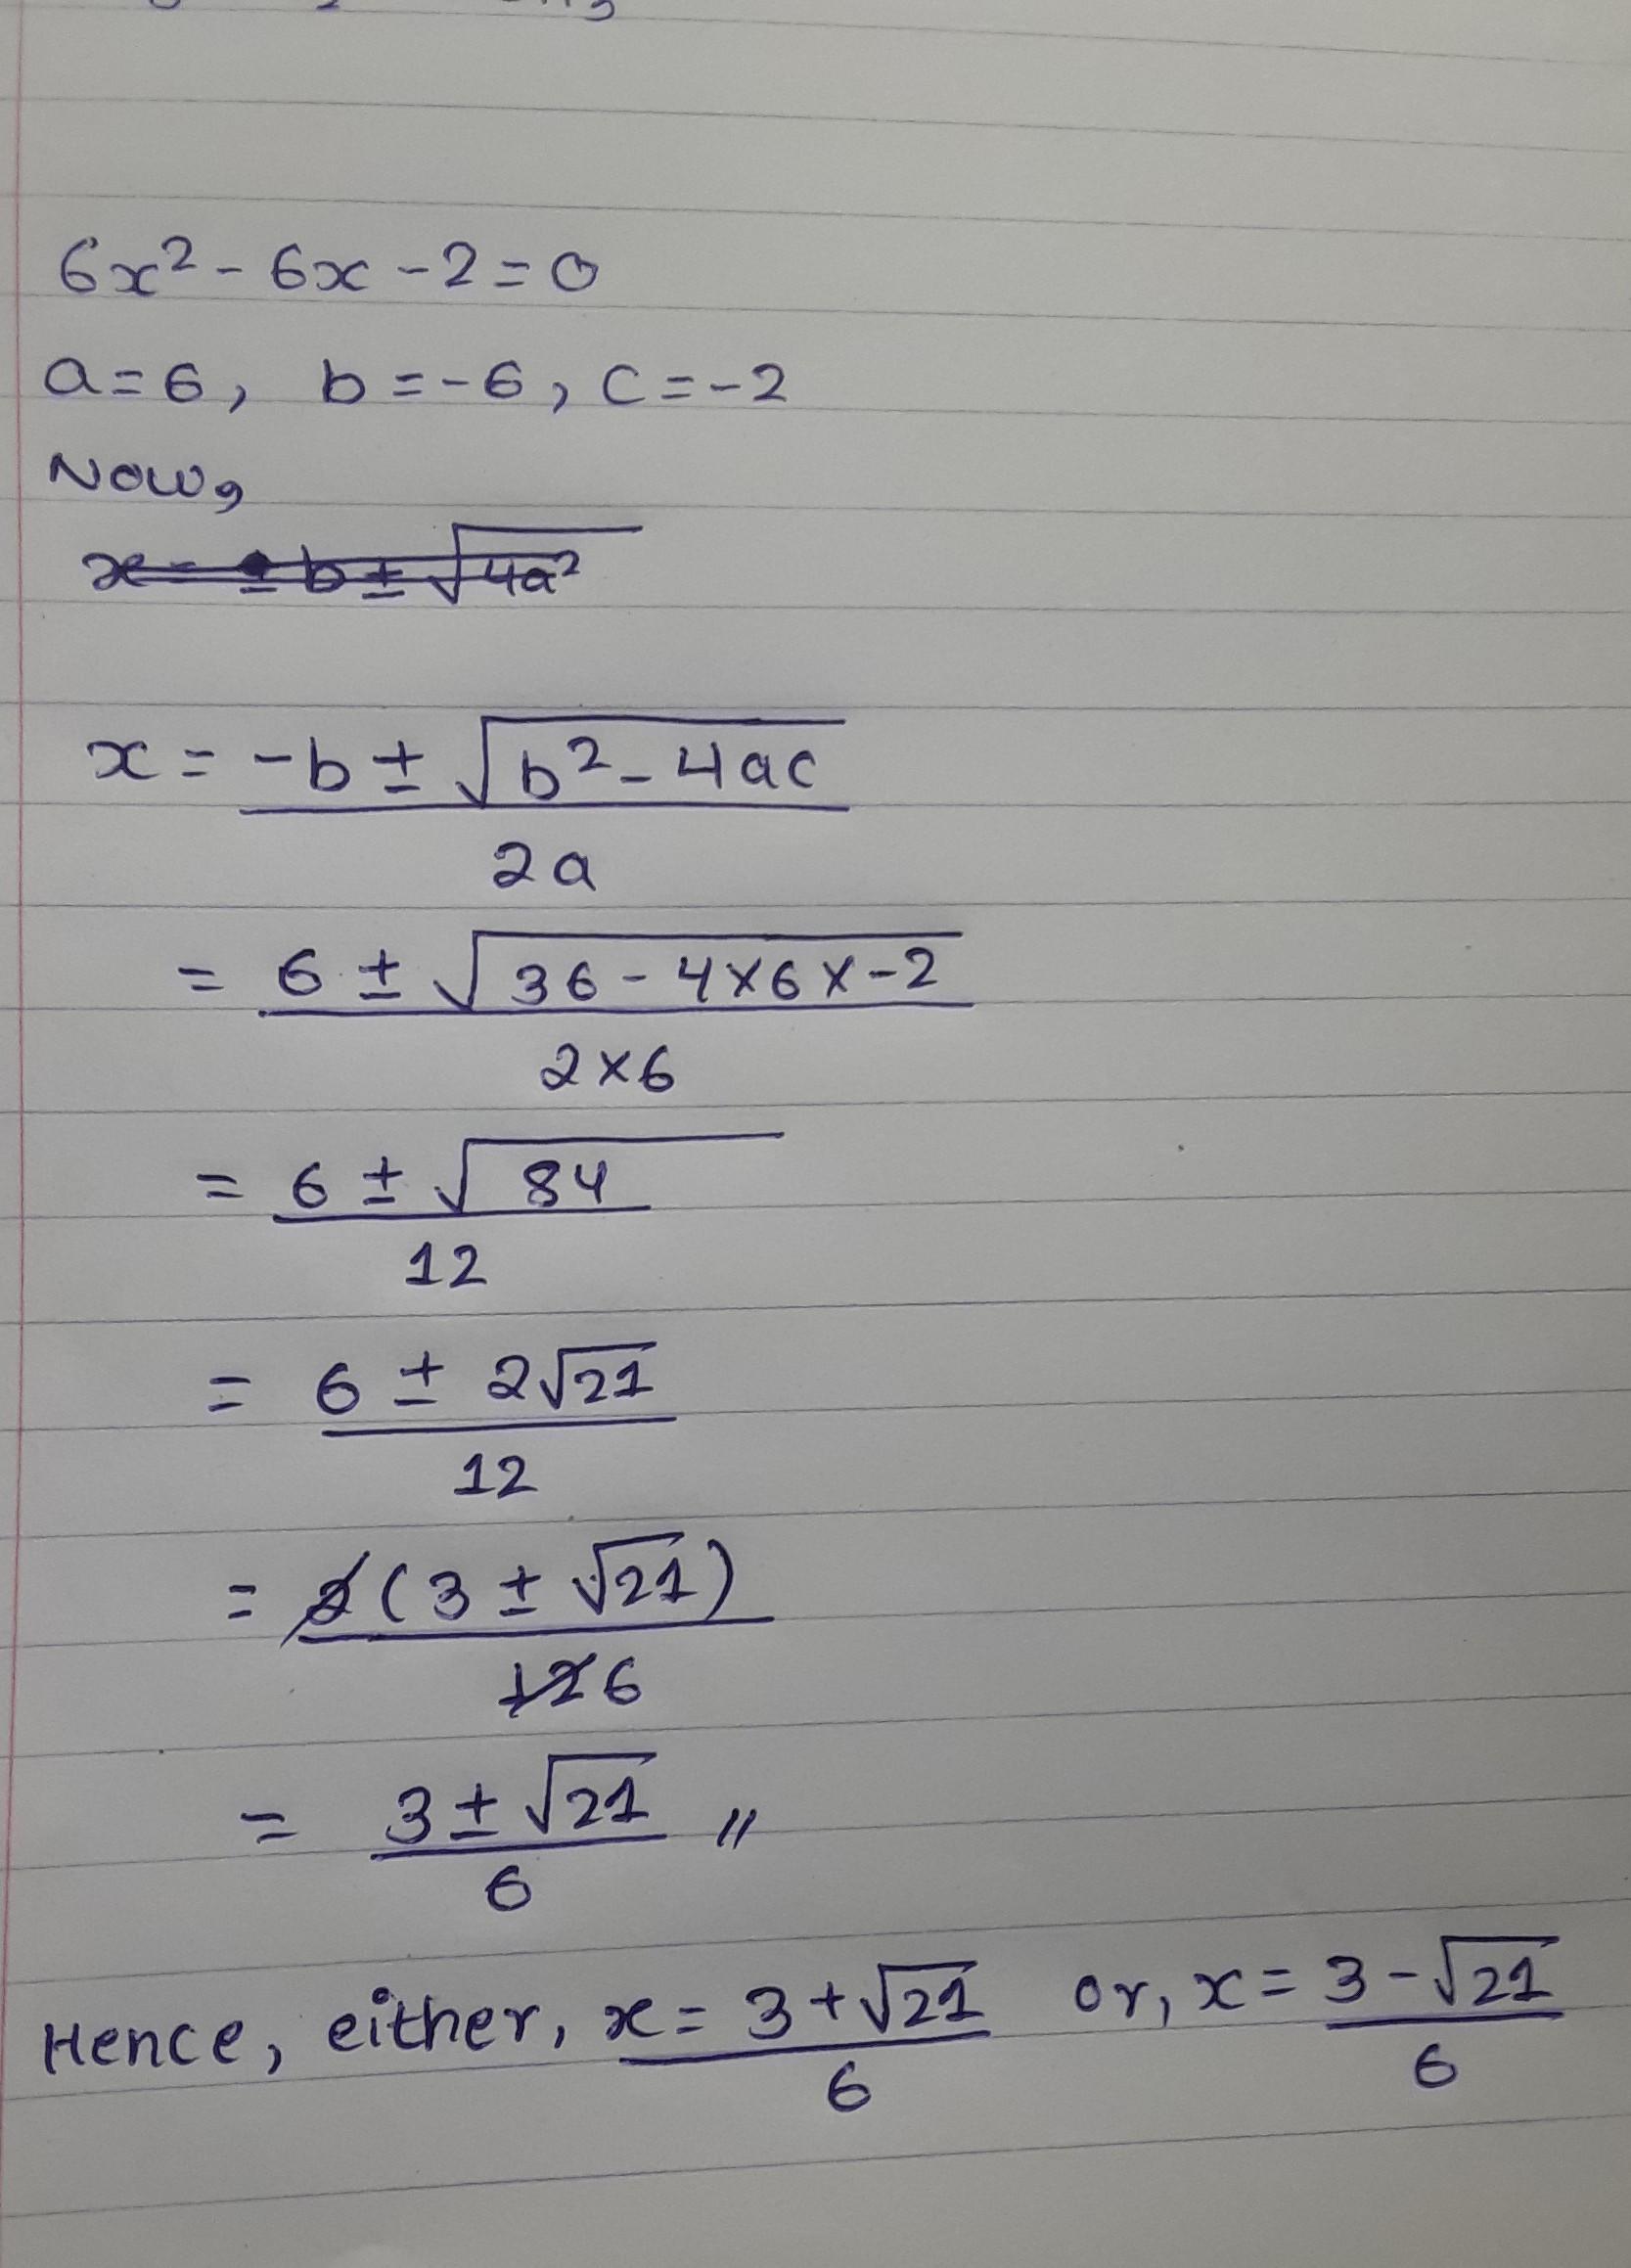 6x² - 6x - 2 = 0
a = 6, b = -6, c = -2
Now,
x = -b ± √b² - 4ac
2a
= 6 ± √36 - 4×6×-2
2×6
= 6 ± √84
12
= 6 ± 2√21
12
= 2(3 ± √21)
12 6
= 3 ± √21 //
6
Hence, either, x = 3 + √21 or, x = 3 - √21
6 6